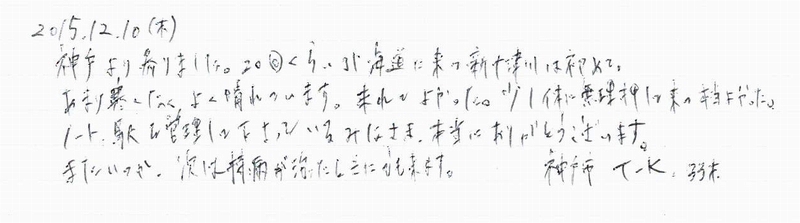 2015.12.10(木)
神戸より参りました。20回くらい北海道に来て新十津川は初めて。
あまり寒くなく、よく晴れています。来れてよかった。少し体に無理押して来て本当よかった。
ノート、駅を管理して下さっているみなさま、本当にありがとうございます。
またいつか、次は持病が治ったときにでも来ます。 神戸市 T-K.